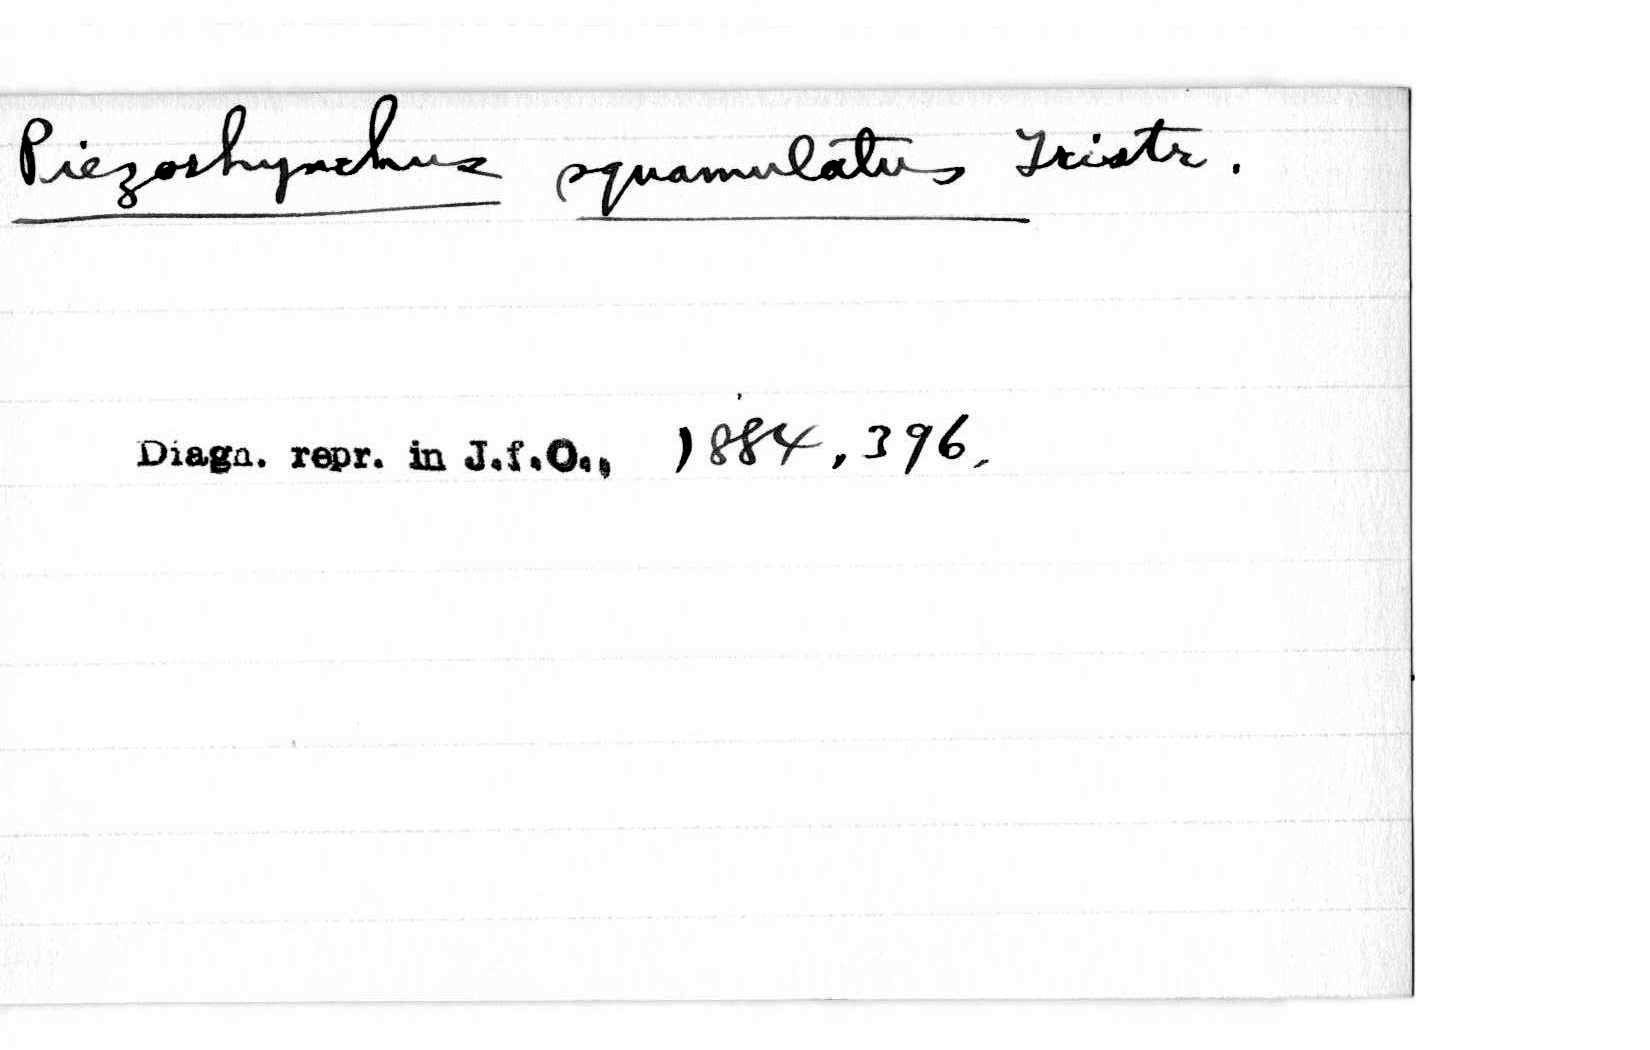 Piezorhynchus squamulatus Tristr.
Diagn. repr. in J.f.O., 1884, 396.